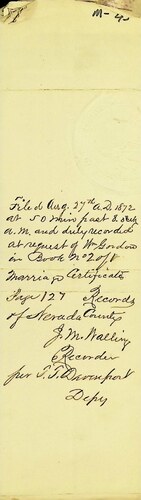 M-4
Filed Aug. 27th A.D. 1872
at 50 min past 8 o'clk
a.m. and duly recorded
at request of Wm Gordon
in Book No 2 of
Marriage Certificates
Page 127 Records
of Nevada County
J. M. Walling
Recorder
per T. T. Davenport
Depy